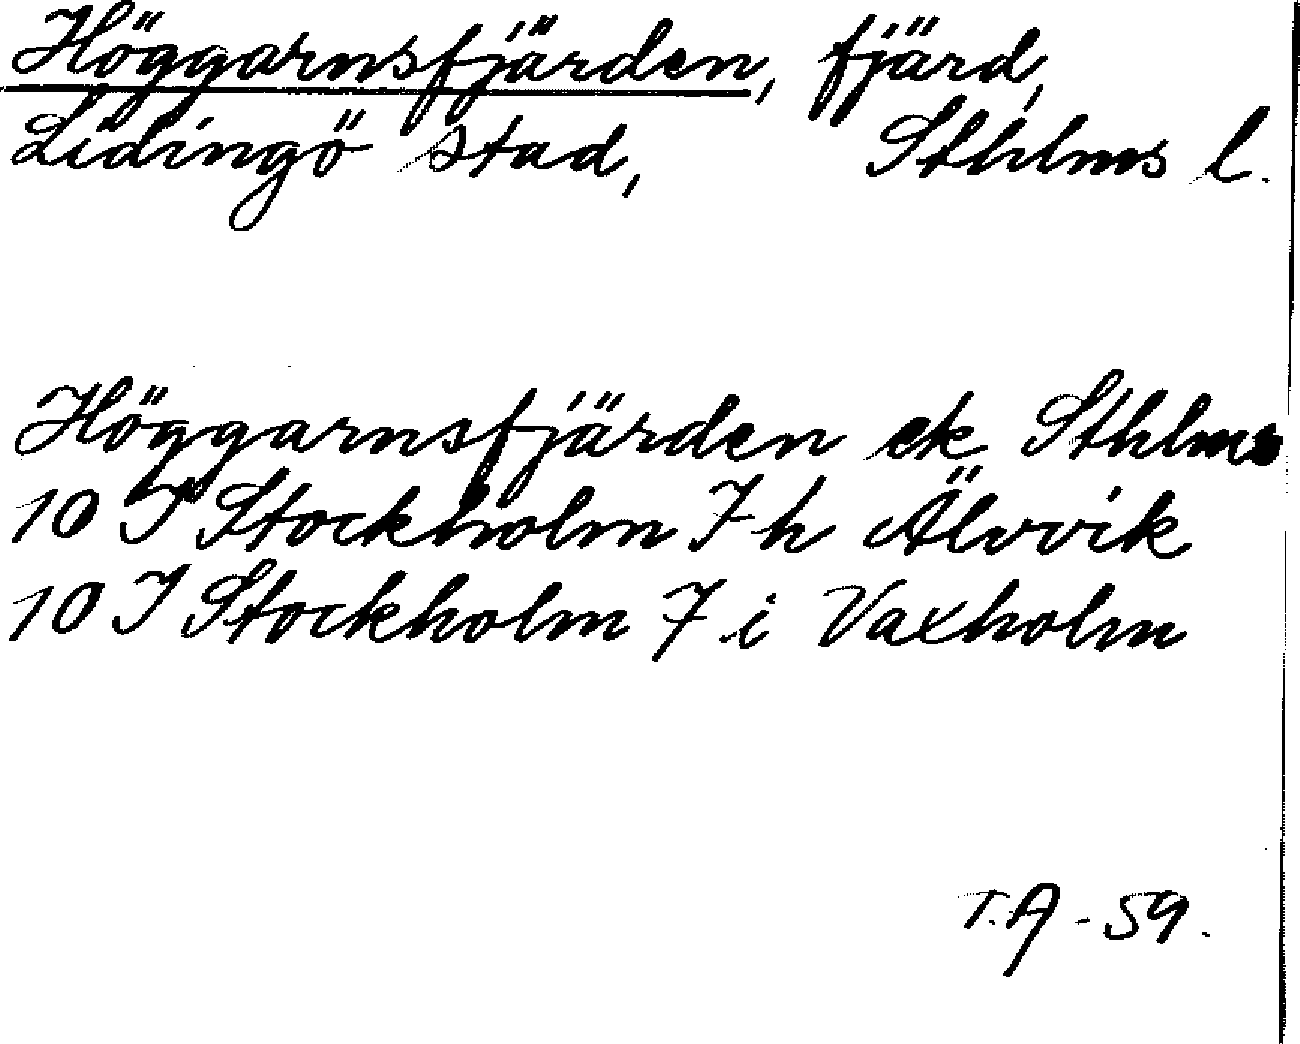 Höggarnsfjärden, fjärd,
Lidingö stad, Sthlms l.
Höggarnsfjärden ek Sthlms
10 I Stockholm 7 h Älvvik
10 I Stockholm 7 i Vaxholm
T.A - 59.